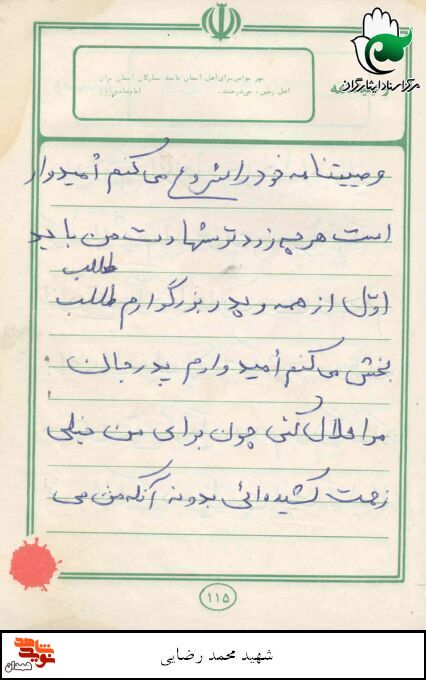 مرکز اسناد ایثارگران
نور مؤمن برای اهل آسمان مانند ستارگان آسمان برای
اهل زمین، می‌درخشد. امام صادق (ع)
وصیتنامه خود را شروع می کنم اُمیدوار
است هر چه زودتر شهادت من باید
طالب
اوّل از همه و پدر بزرگوارم طلب
بخش می کنم اُمیدوارم پدر جان
مرا حلال کنی چون برای من خیلی
زحمت کشیده‌ائی بدونه آنکه من می
۱۱۵
شهید محمد رضایی
نوید شاهد
همدان